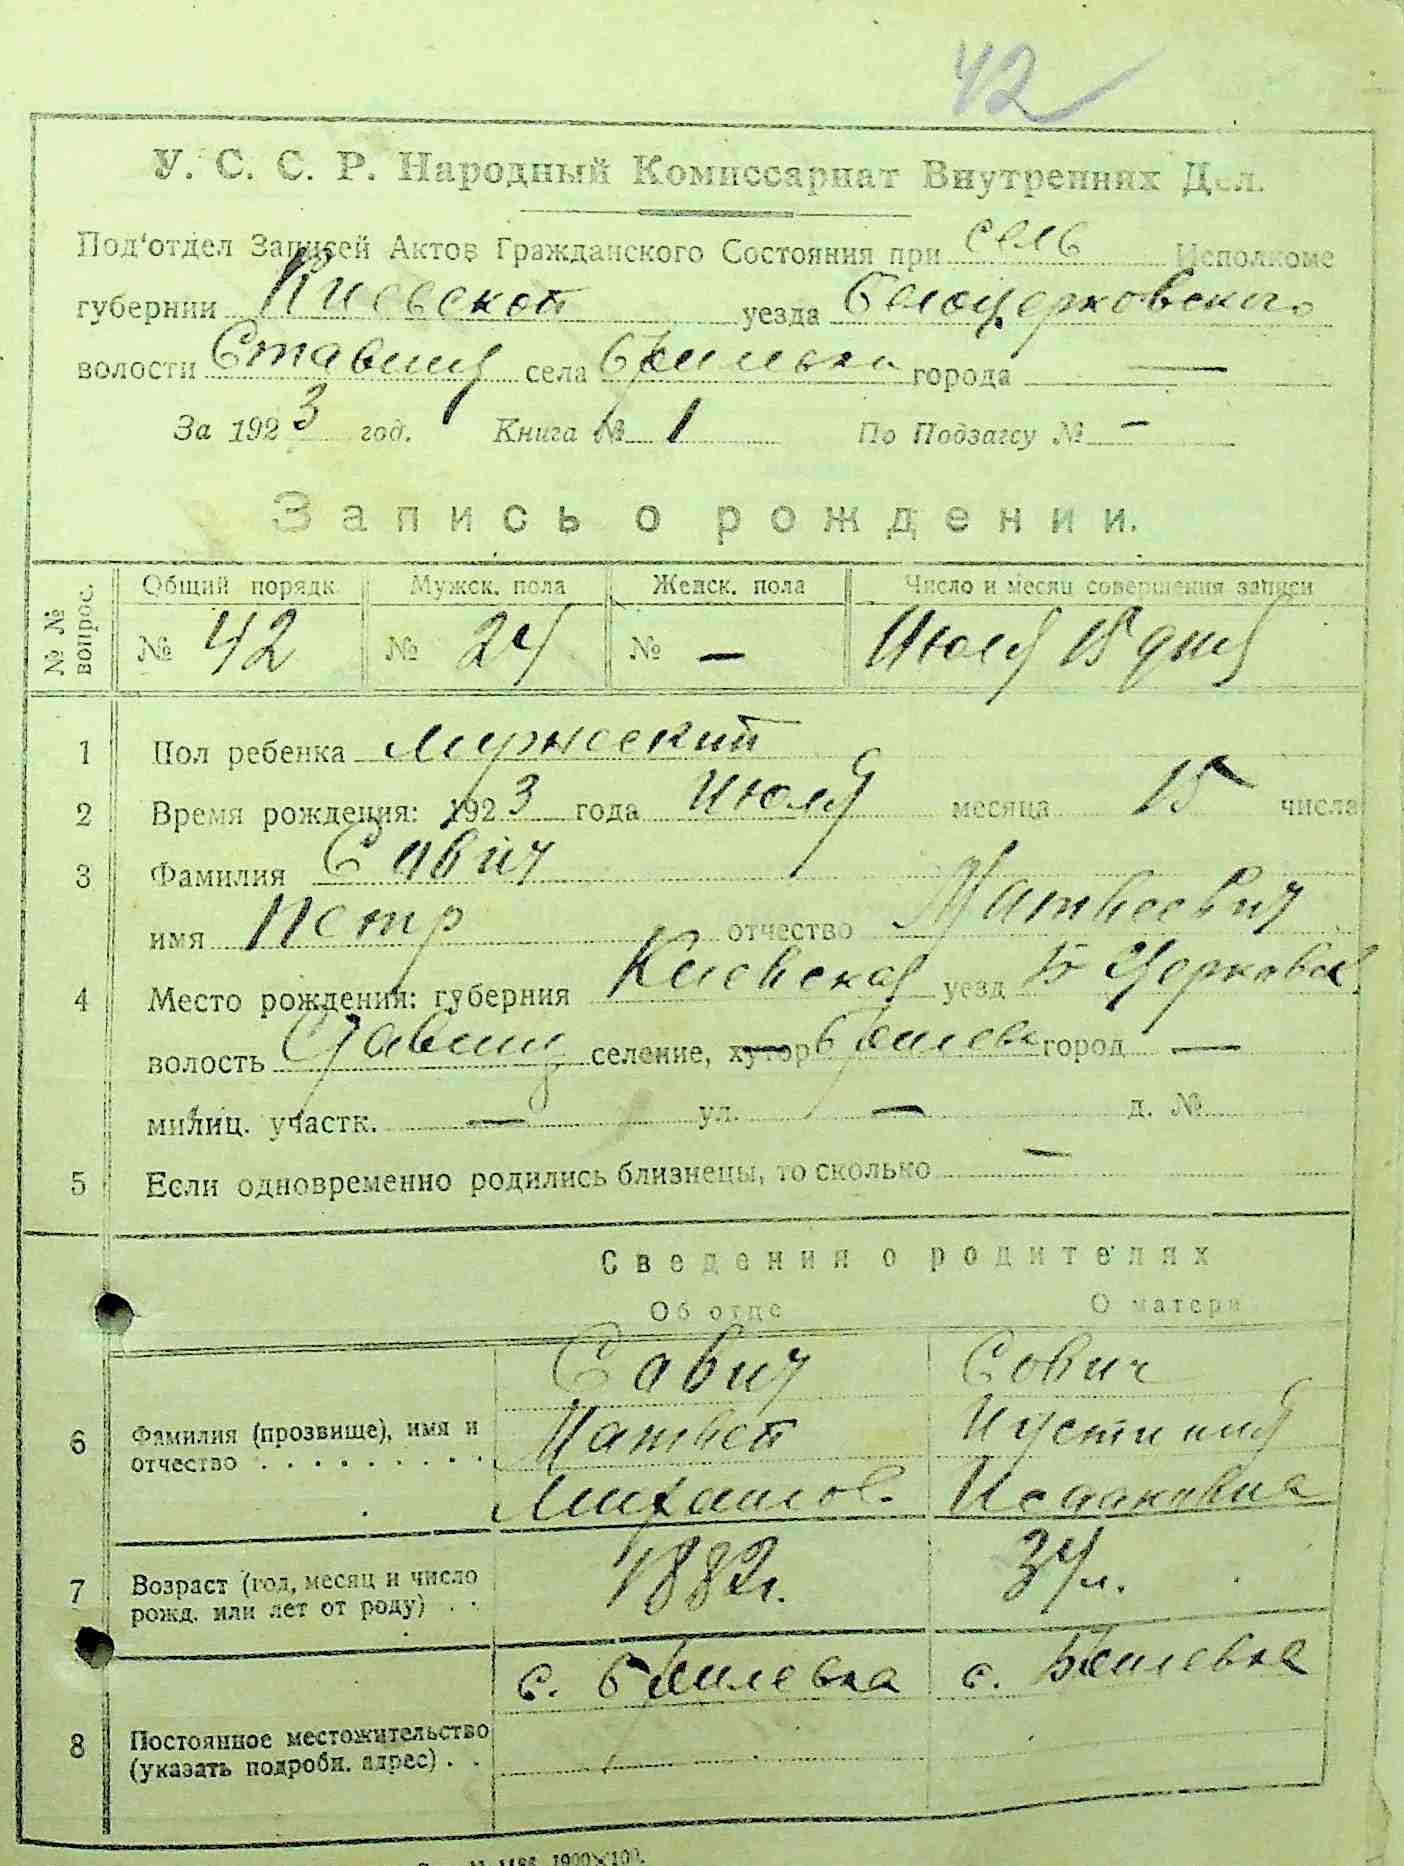 42
У. С. С. Р. Народный Комиссариат Внутренних Дел.
Под'отдел Записей Актов Гражданского Состояния при сель Исполкоме
губернии Киевской уезда Белоцерковского
волости Ставищ села города —
За 1923 год. Книга № 1 По Подзагсу № —
Запись о рождении.
№ № вопрос. Общий порядк. Мужск. пола Женск. пола Число и месяц совершения записи
№ 42 № 24 № — Июля 18 дня
1 Пол ребенка Мужеский
2 Время рождения: 1923 года Июля месяца 15 числа
3 Фамилия Савич
имя Петр отчество Матвеевич
4 Место рождения: губерния Киевская уезд Б Церковск
волость Ставищ селение, хутор город —
милиц. участк. — ул. — д. №
5 Если одновременно родились близнецы, то сколько —
Сведения о родителях
Об отце О матери
Савич Сович
6 Фамилия (прозвище), имя и отчество Матвей Иустиния
Михайлов. Исааковна
7 Возраст (год, месяц и число рожд. или лет от роду) 1882г. 34 л.
с. с.
8 Постоянное местожительство (указать подробн. адрес)